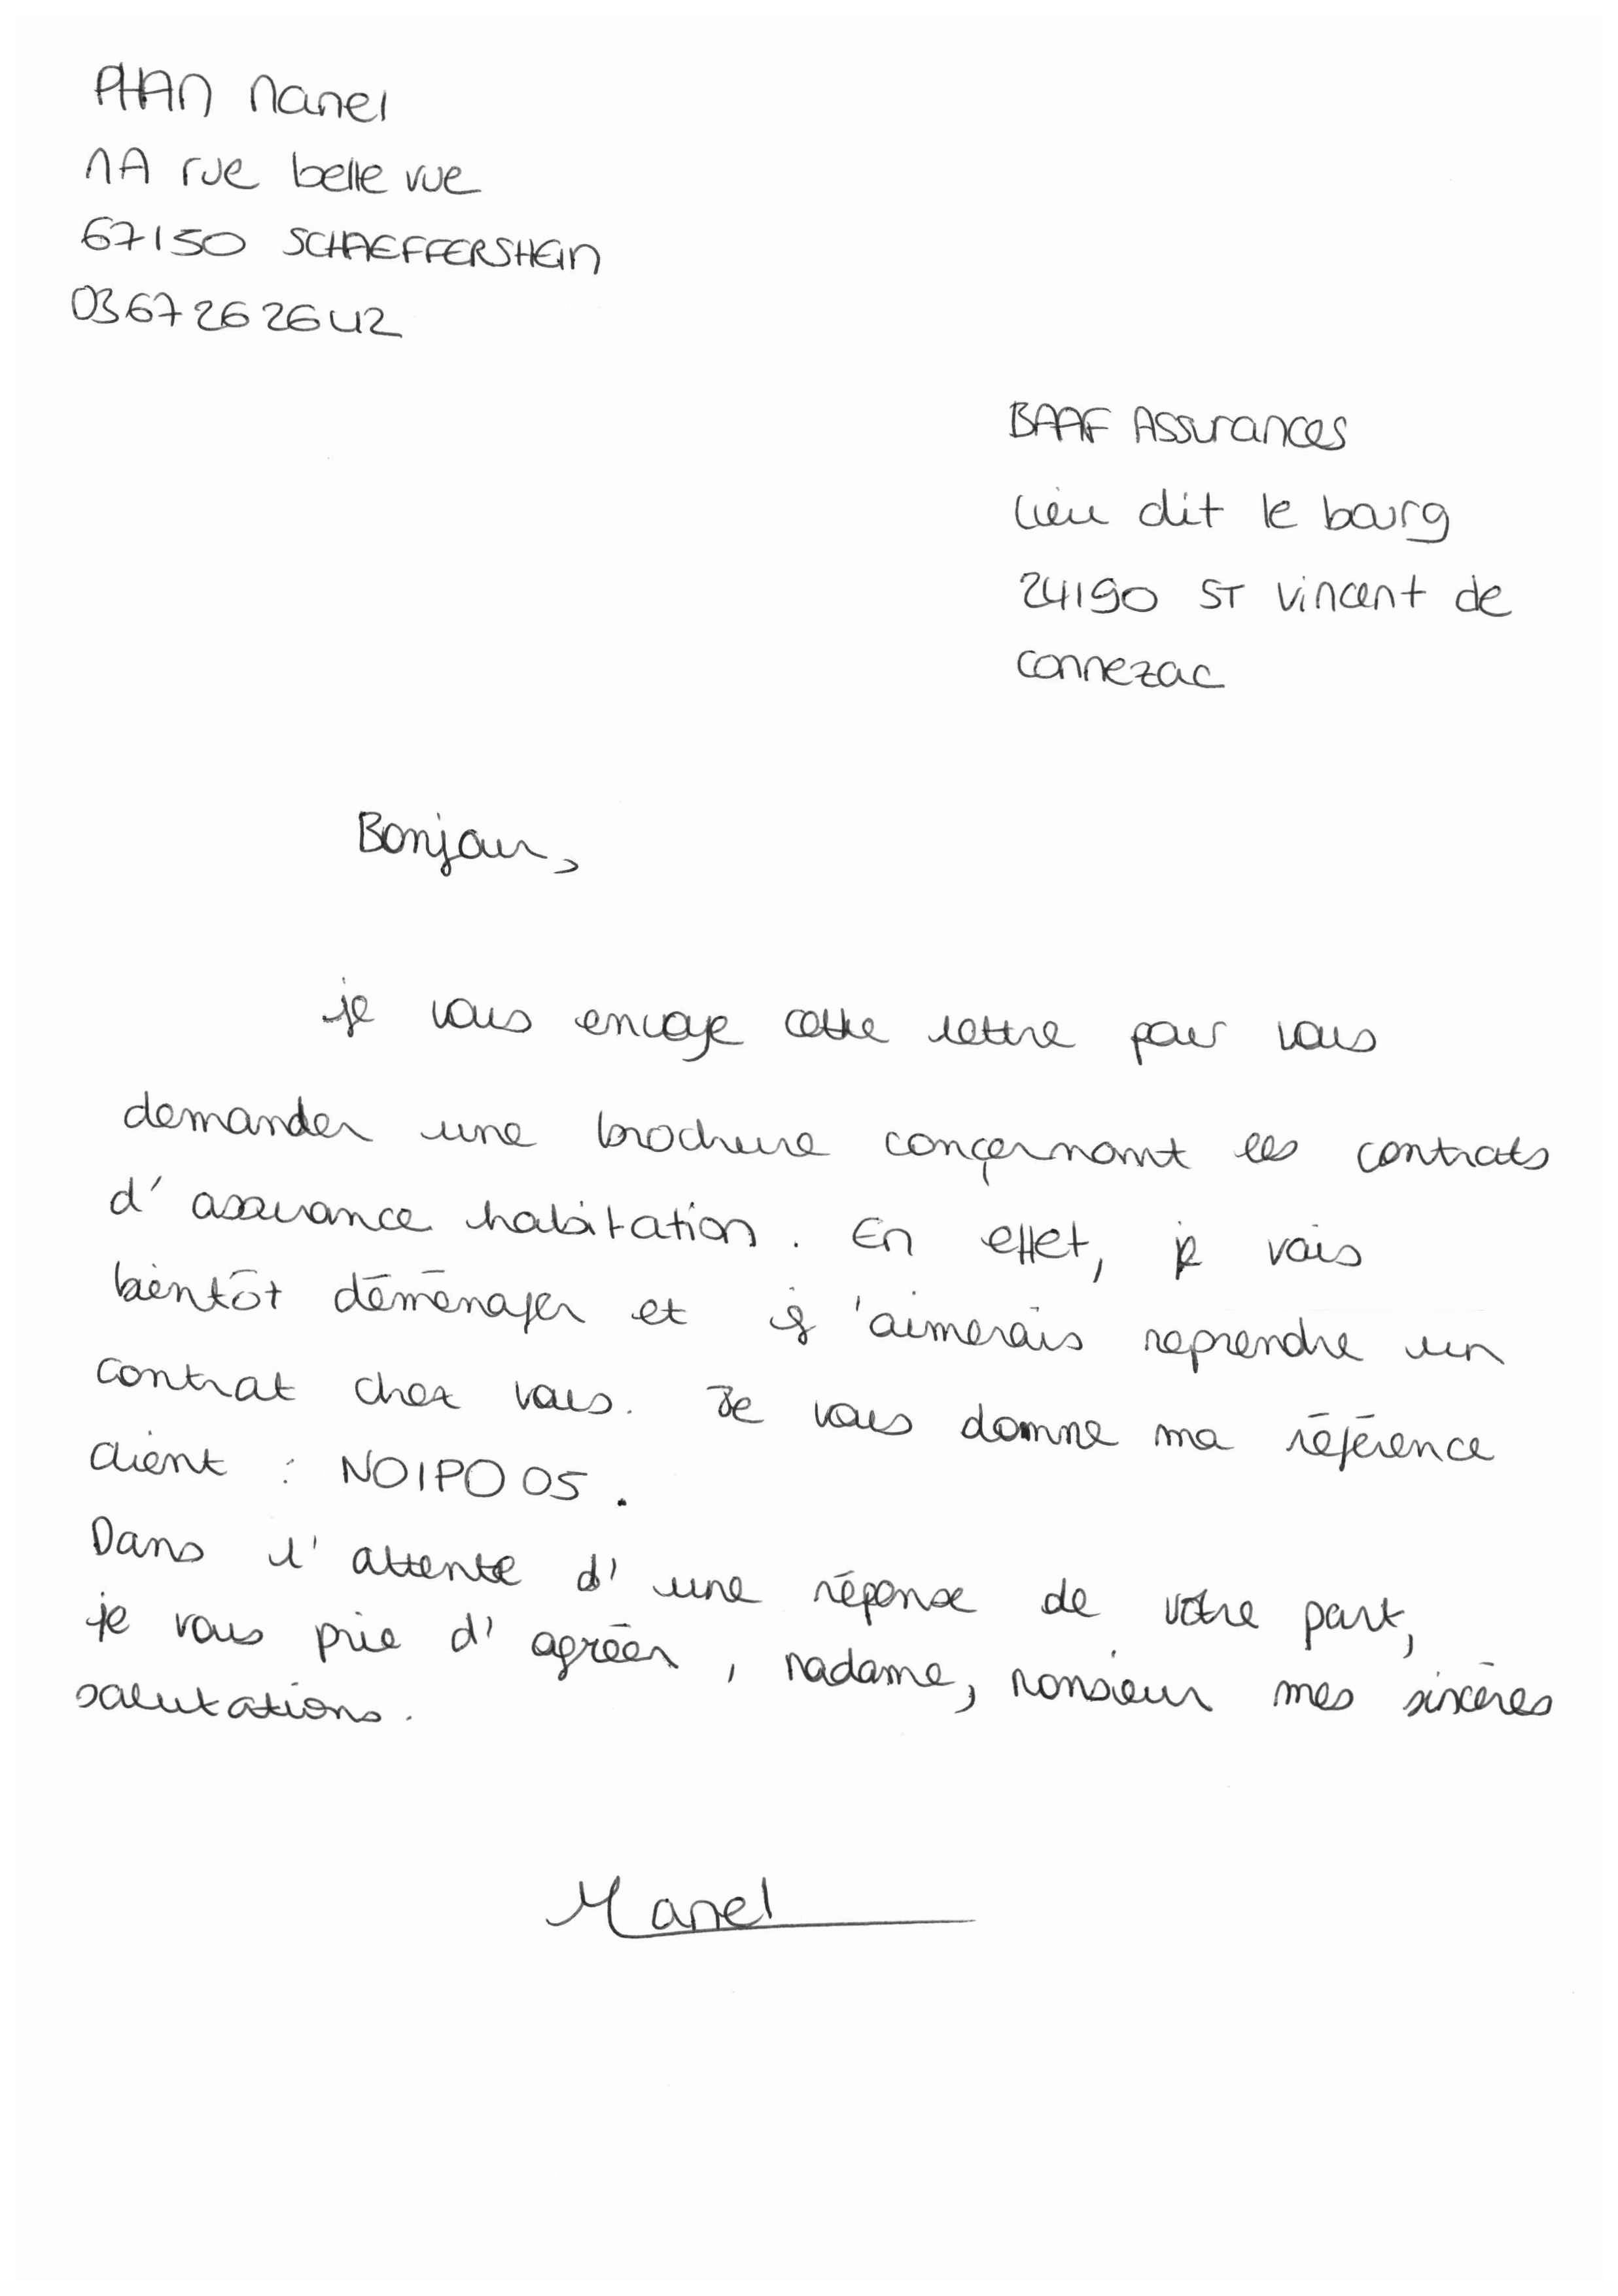 PHAN Manel
1A rue belle vue
67150 SCHAEFFERSHEIN
0367262642
BAAF Assurances
Lieu dit le bourg
24190 ST Vincent de
Connezac
Bonjour,
je vous envoye cette lettre pour vous
demander une brochure conçernant les contrats
d'assurance habitation. En effet, je vais
bientôt déménager et j'aimerais reprendre un
contrat chez vous. Je vous donne ma référence
client : NOIPO05.
Dans l'attente d'une réponse de votre part,
je vous prie d'agréer, Madame, Monsieur mes sincères
salutations.
Manel